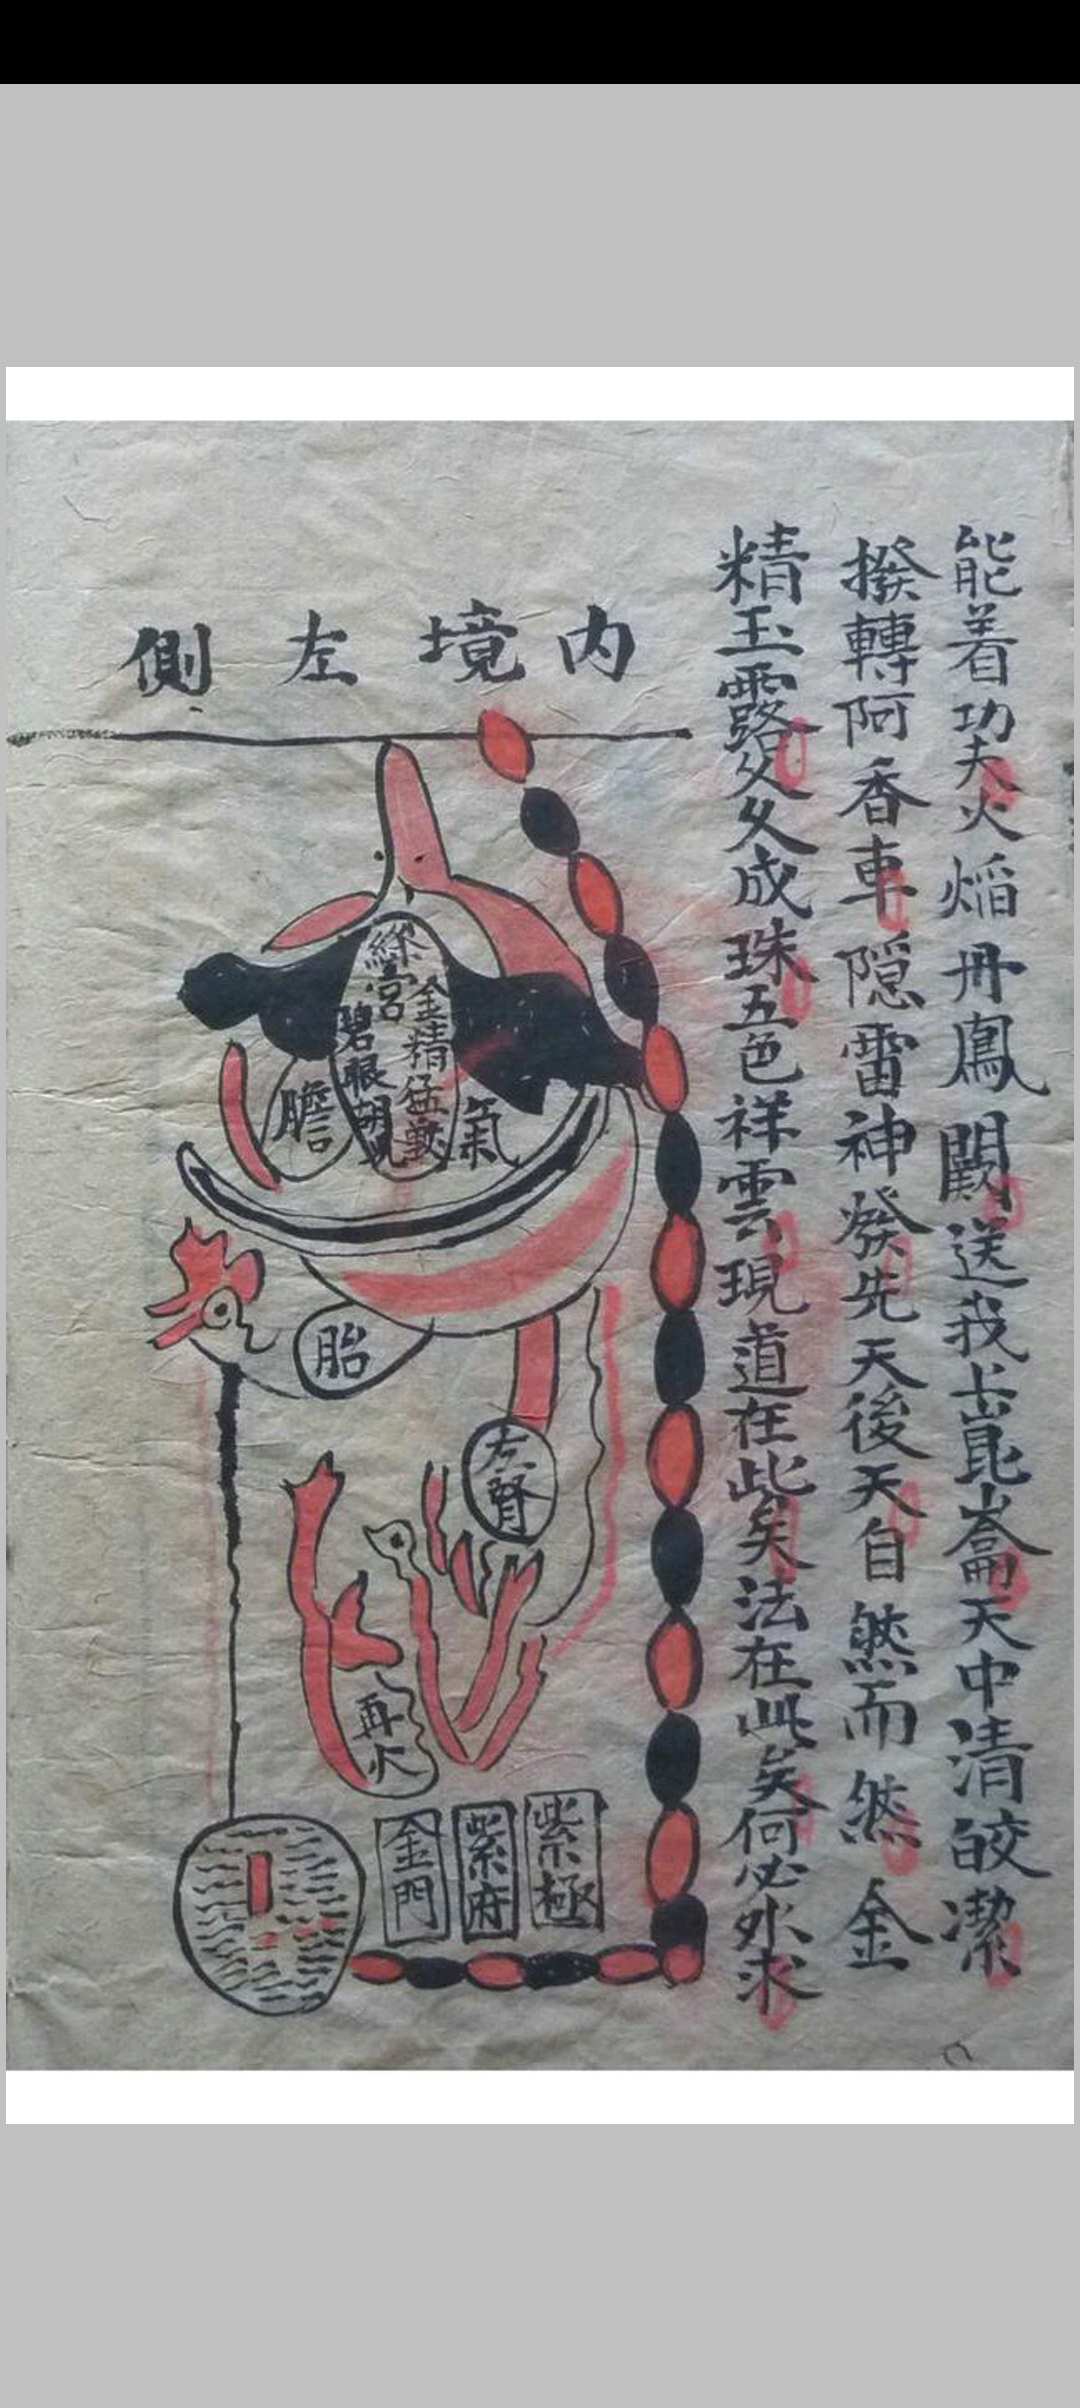 能着功夫火焰丹鳳闕送我上崑崙天中清皎潔
撥轉阿香車隱雷神發先天後天自然而然金
精玉露久久成珠五色祥雲現道在此矣法在此矣何必外求
内境左側
絳宮
金精猛獸
碧眼胡兒
膽
氣
胎
左腎
再火
紫極
紫府
金門